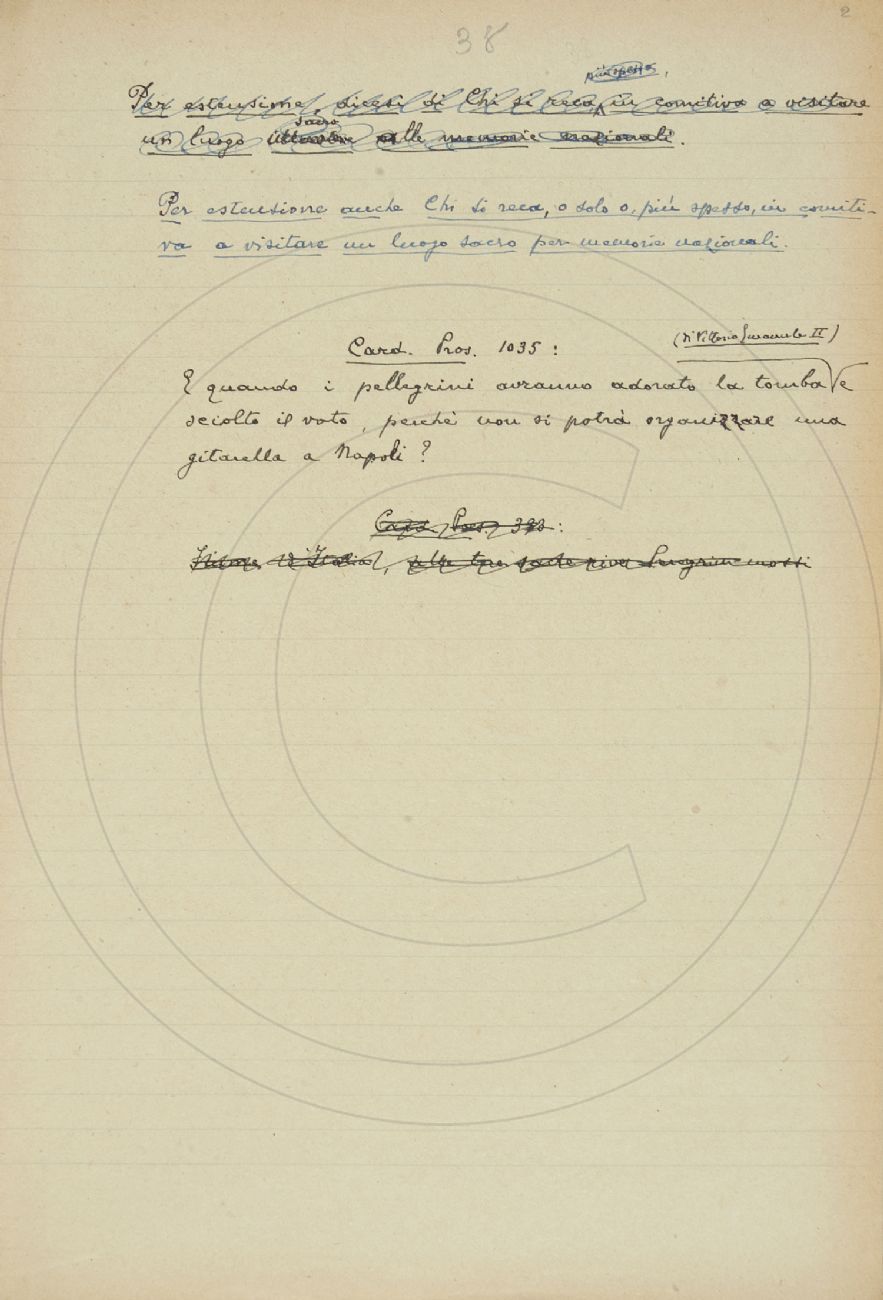 2
38
più spesso,
Per estensione, dicesi di Chi si reca, in comitiva a visitare
sacro
un luogo alle memorie nazionali.
Per estensione anche Chi si reca, o solo o, più spesso, in comiti-
va a visitare un luogo sacro per memorie nazionali.
(di Vittorio Emanuele II)
Card. Pros. 1035:
E quando i pellegrini avranno adorato la tomba e
sciolto il voto, perchè non si potrà organizzare una
gitarella a Napoli?
Card. Pros. :
d'Italia, alle tue sacre rive Peregrin mossi